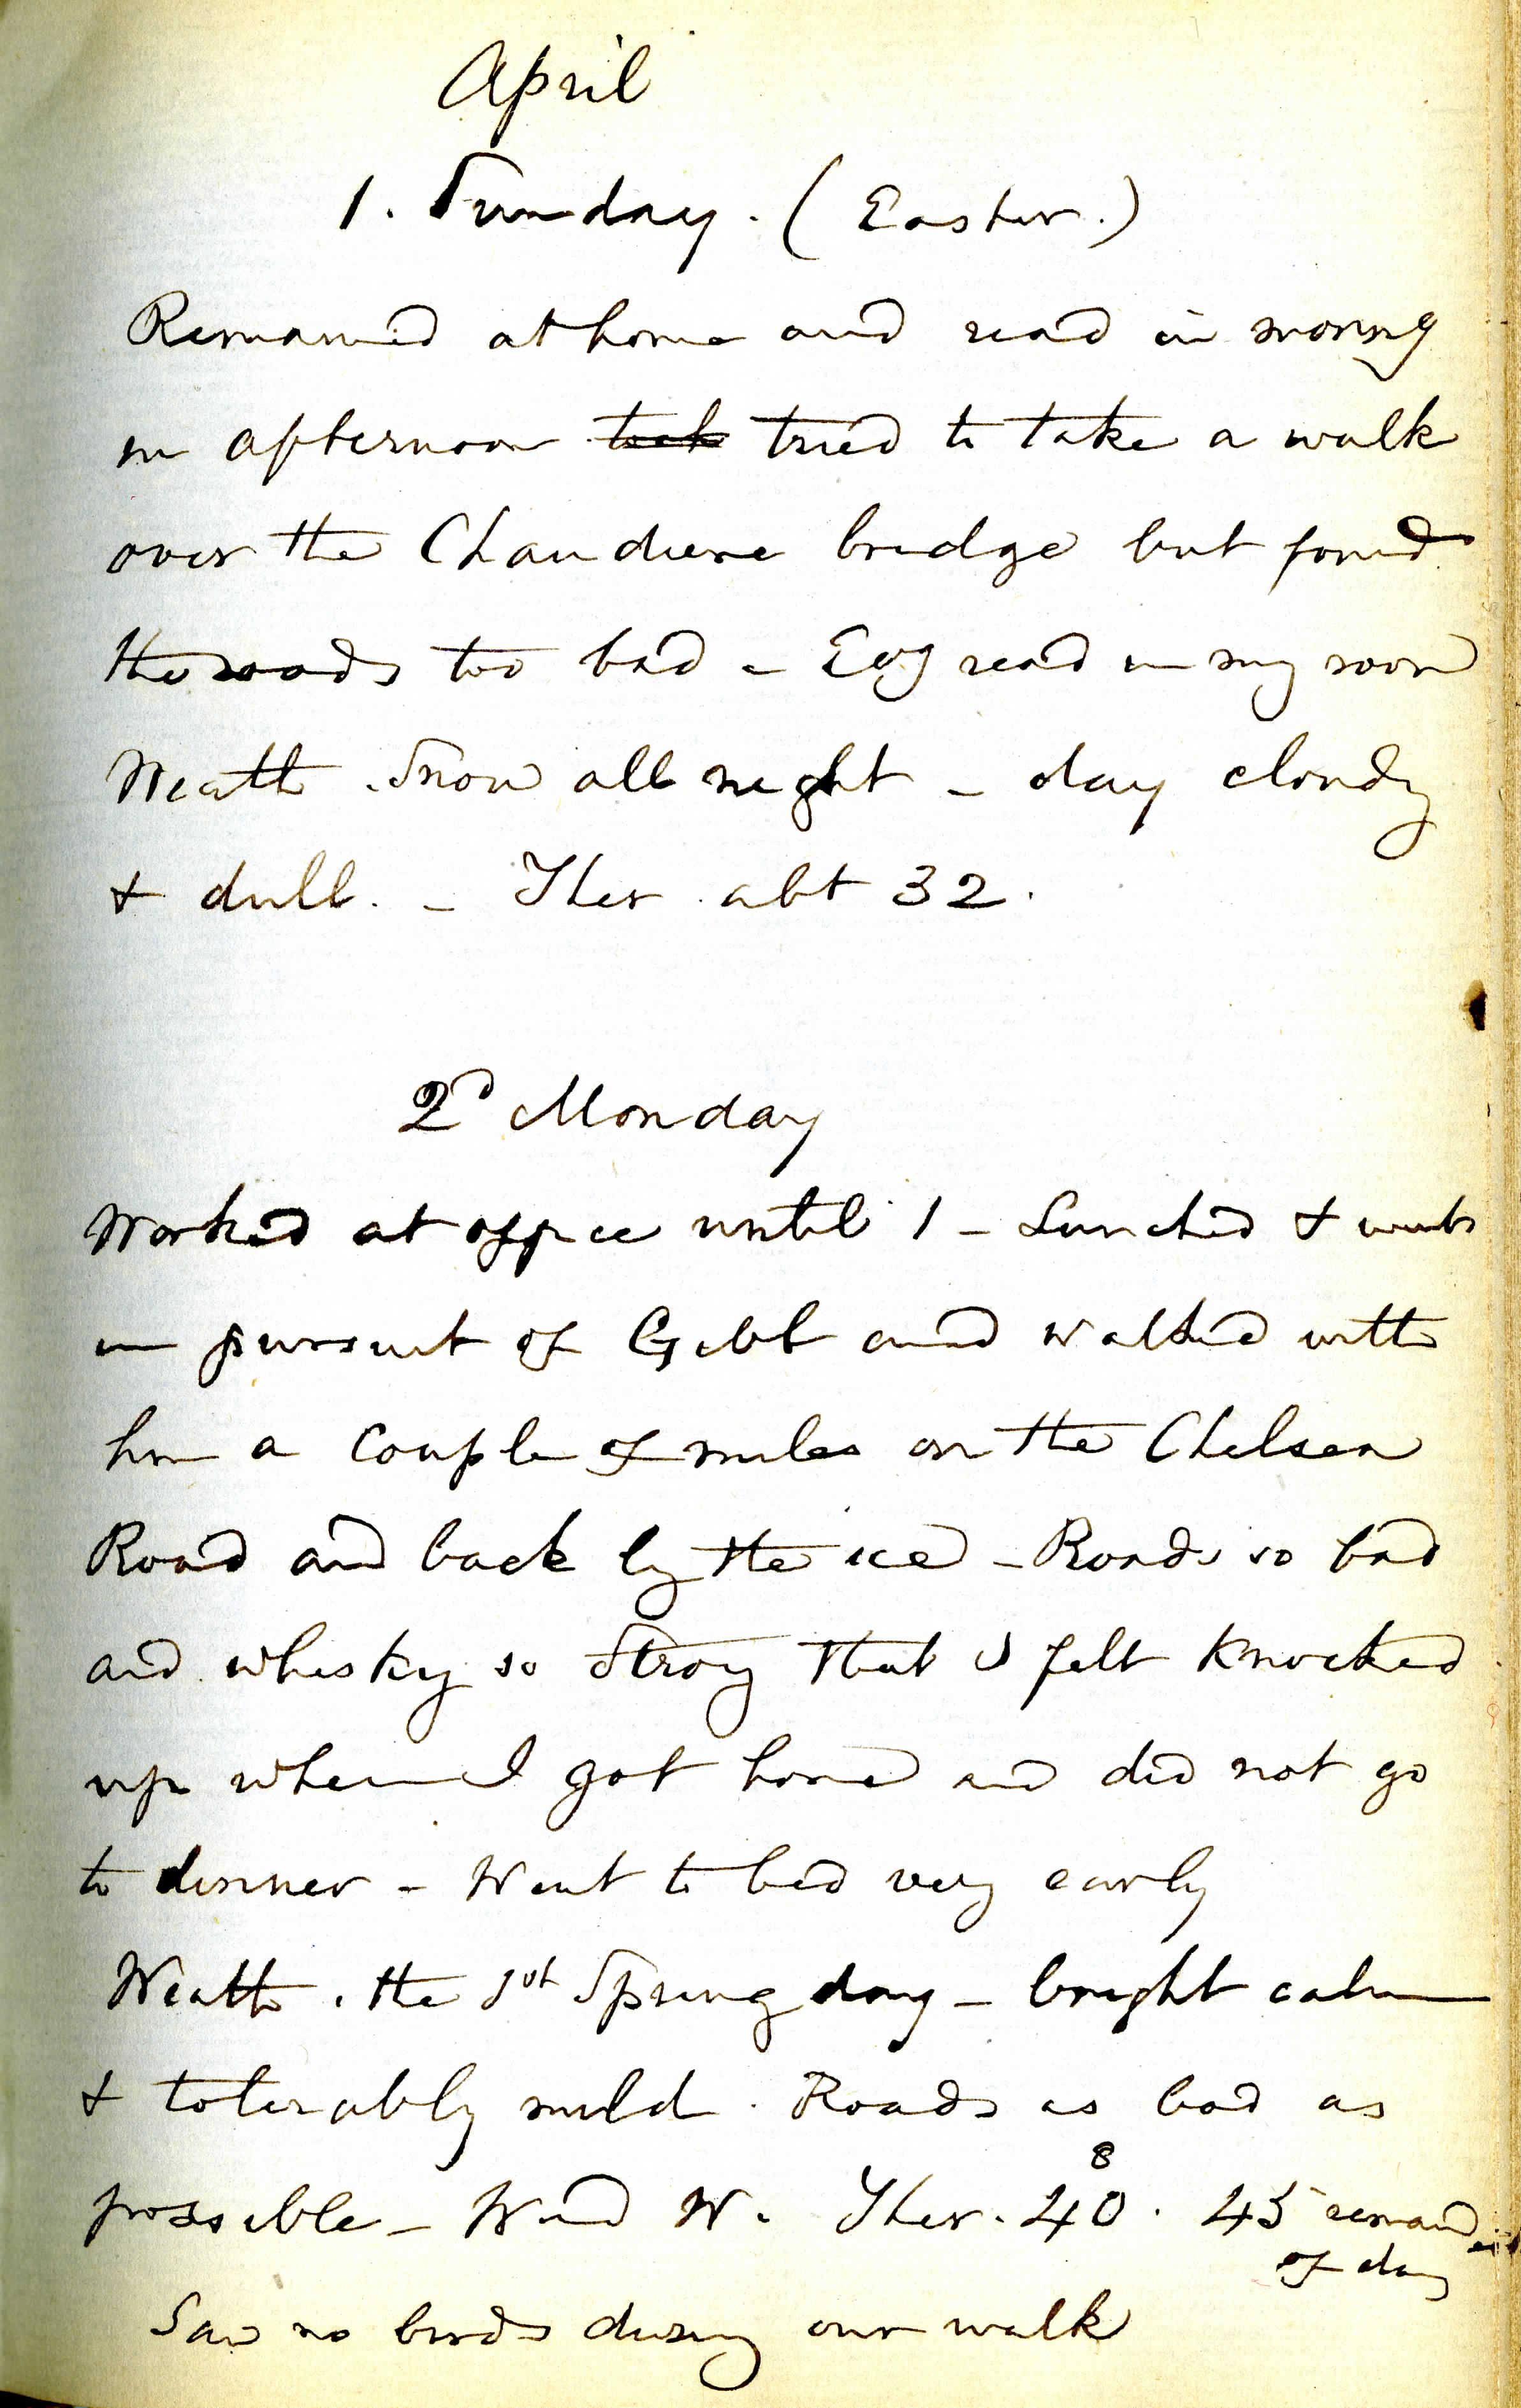 April
1. Sunday. (Easter.)
Remained at home and read in morng
in afternoon took tried to take a walk
over the Chaudiere bridge but found
the roads too bad - Evg read in my room
Weath. Snow all night - day cloudy
& dull. - Ther. abt 32.
2d Monday
Worked at office until 1 - Lunched & went
in pursuit of Gibb and walked with
him a couple of miles on the Chelsea
Road and back by the ice - Roads so bad
and whisky so strong that I felt knocked
up when I got home and did not go
to dinner - Went to bed very early
Weath. the 1st Spring day - bright calm
& tolerably mild. Roads as bad as
8
possible - Wind W. Ther. 40. 45 remaind
of day
Saw no birds during our walk